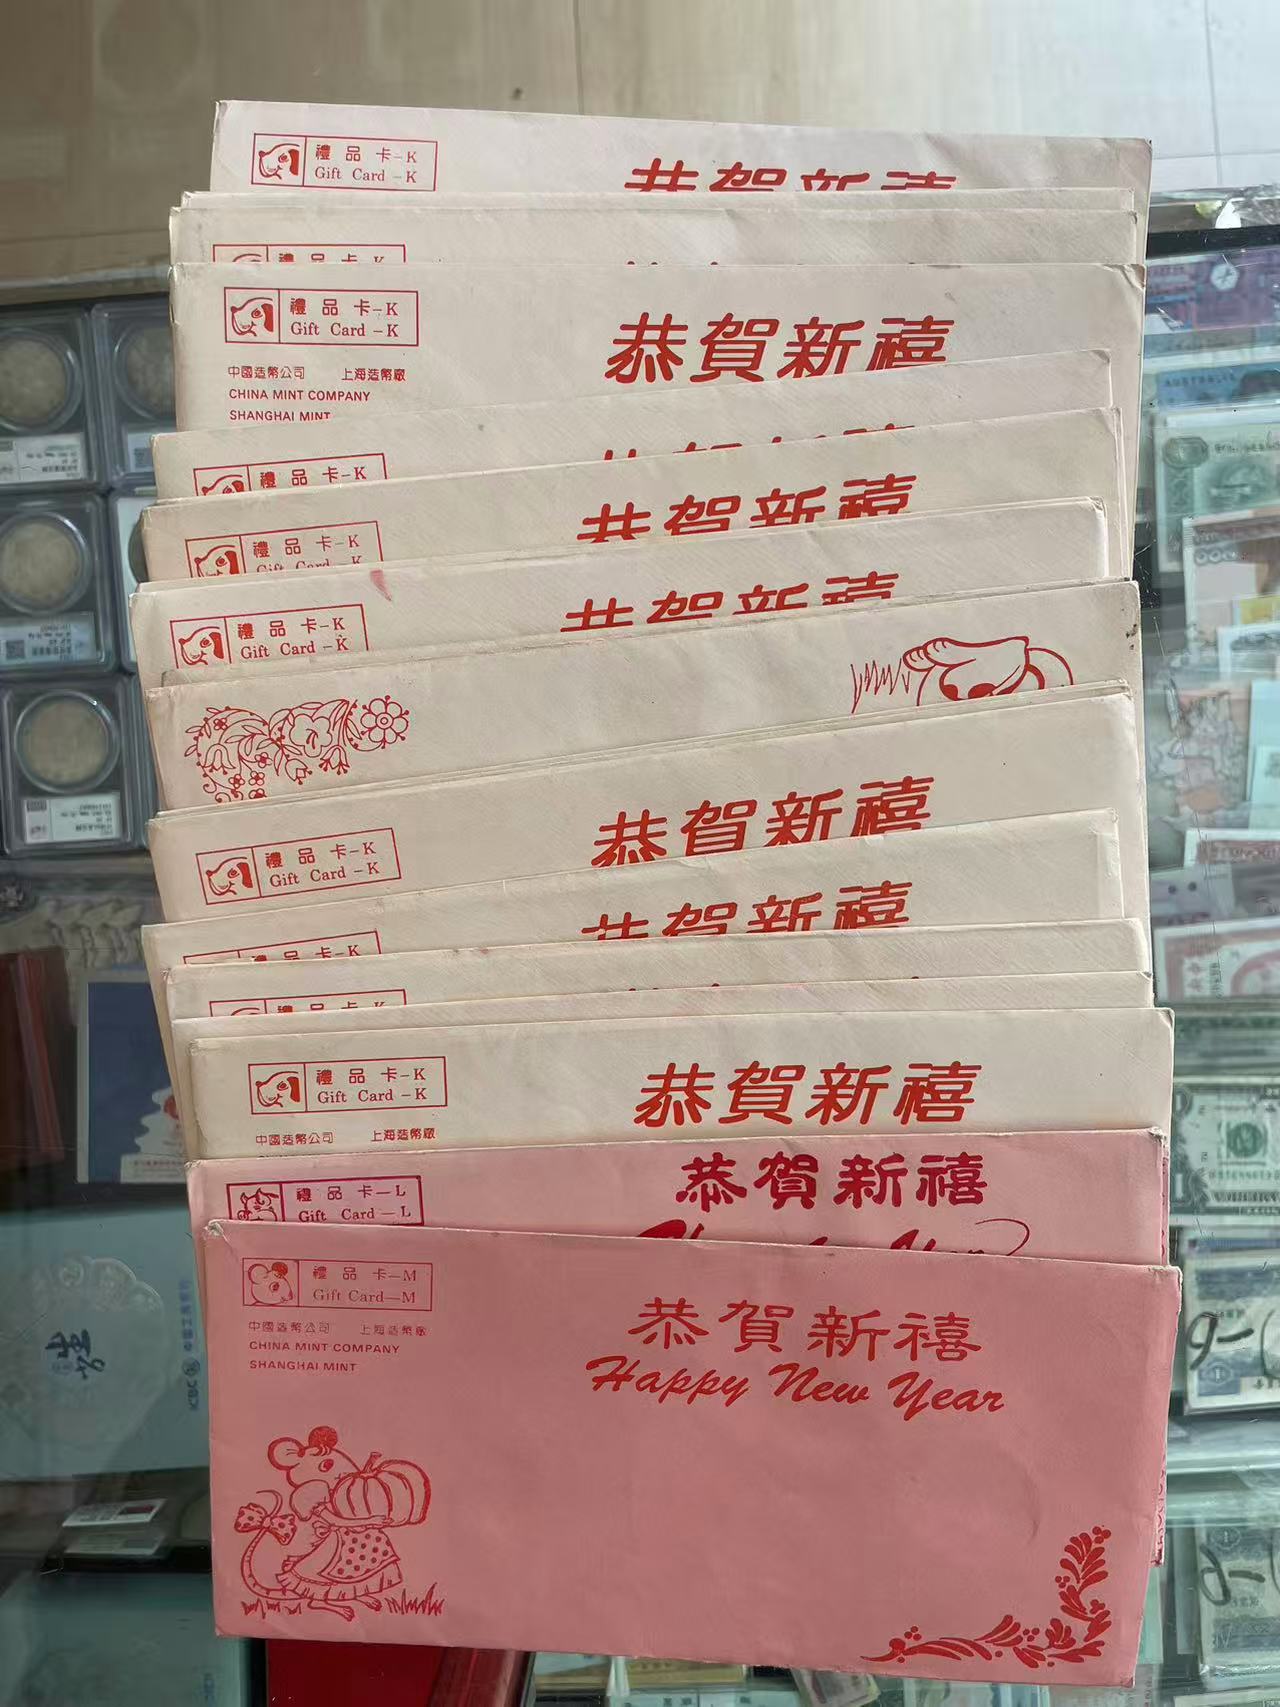 禮品卡-K
Gift Card -K
恭賀新禧
禮品卡-K
禮品卡-K
Gift Card -K
中國造幣公司 上海造幣廠
CHINA MINT COMPANY
SHANGHAI MINT
恭賀新禧
禮品卡-K
恭賀新禧
禮品卡-K
Gift Card -K
恭賀新禧
禮品卡-K
Gift Card -K
恭賀新禧
禮品卡-K
Gift Card -K
恭賀新禧
禮品卡-K
恭賀新禧
禮品卡-K
禮品卡-K
Gift Card -K
中國造幣公司 上海造幣廠
恭賀新禧
禮品卡—L
Gift Card —L
恭賀新禧
Happy New Year
禮品卡—M
Gift Card—M
中國造幣公司 上海造幣廠
CHINA MINT COMPANY
SHANGHAI MINT
恭賀新禧
Happy New Year
ICBC